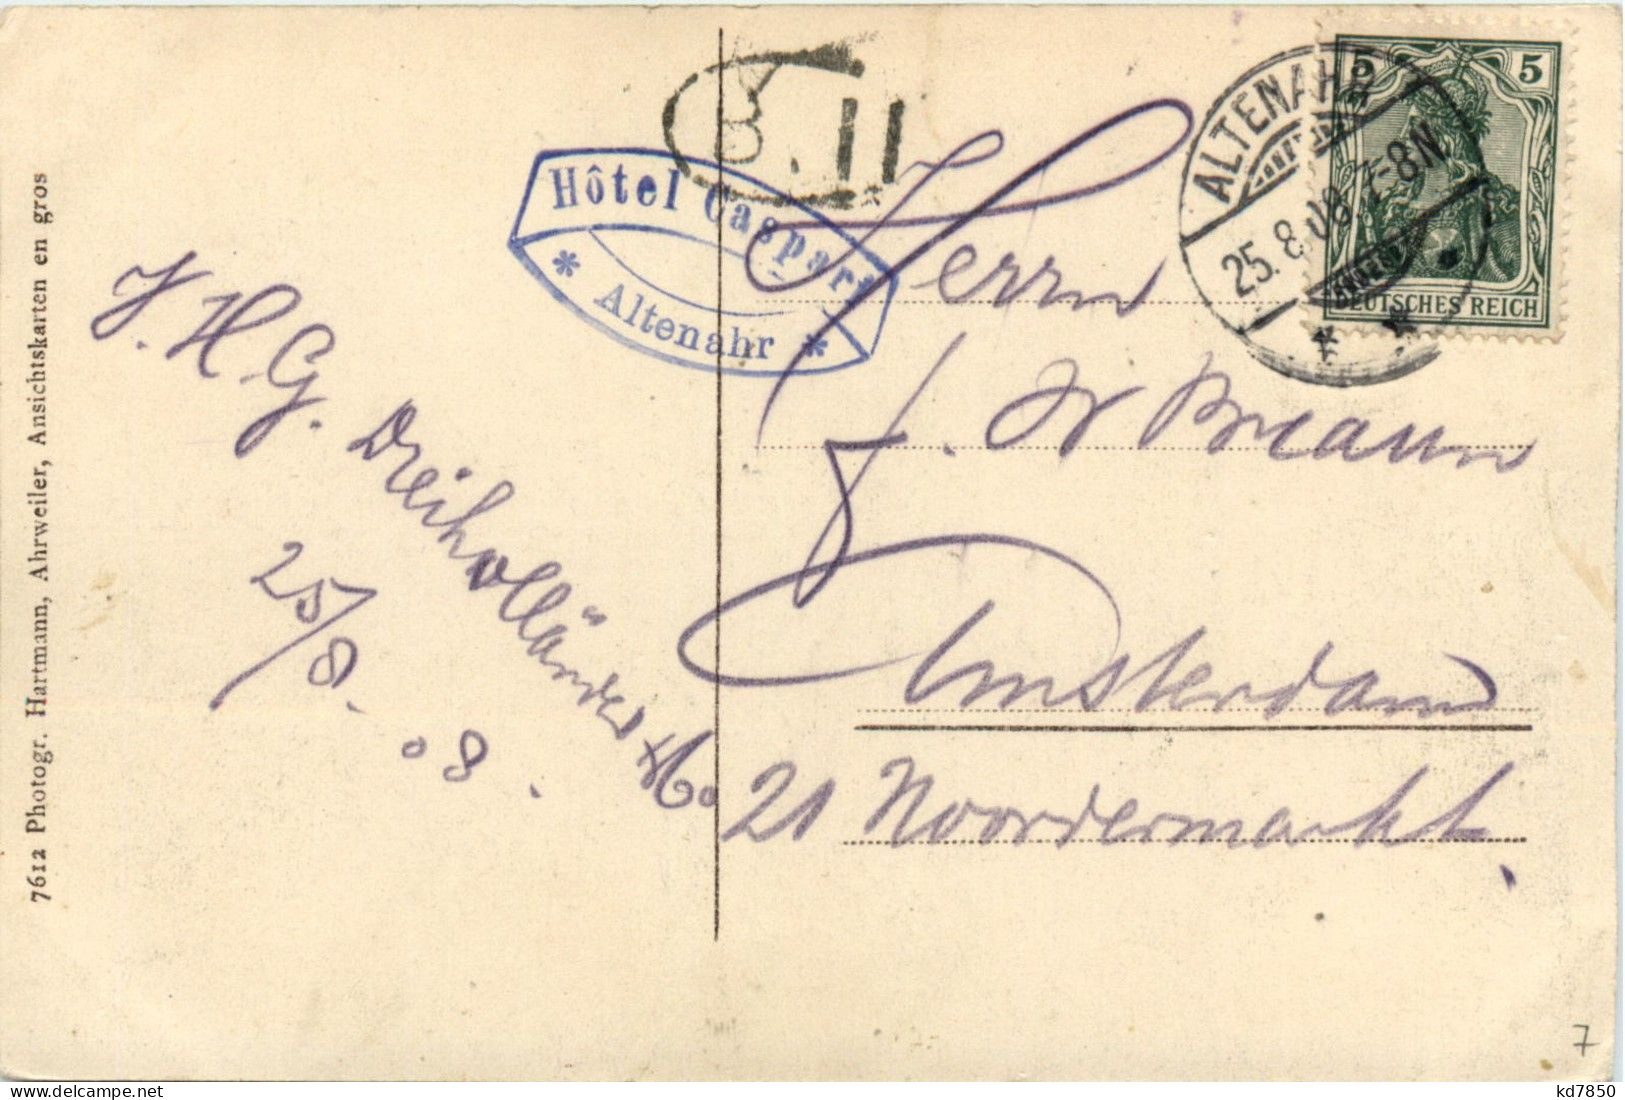 7612 Photogr. Hartmann, Ahrweiler, Ansichtskarten en gros
B. 11
Hôtel Caspari
* Altenahr *
ALTENAHR
25.8.08. 7-8N
* *
5 5
DEUTSCHES REICH
Herrn
J. W Braun
Amsterdam
21 Noordermarkt.
J. H. G.
Dreiholländer
25/8.
08.
7
kd7850